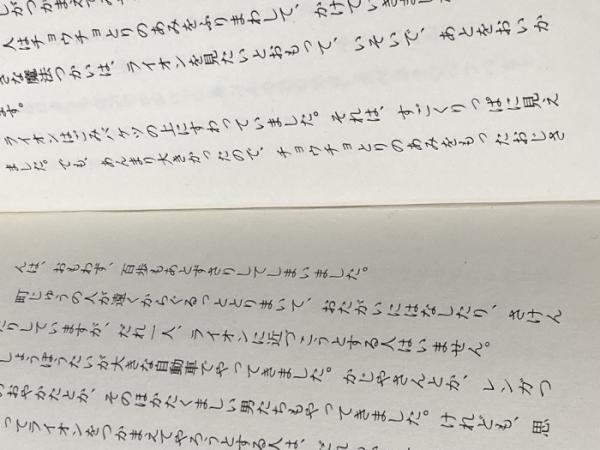 がつかまえて
人はチョウチョとりのあみをふりまわして、かけていきまし
きな魔法つかいは、ライオンを見たいとおもって、いそいで、あとをおいか
ます。
ライオンはごみバケツの上にすわっていました。それは、すごくりっぱに見え
ました。でも、あんまり大きかったので、チョウチョとりのあみをもったおじさ
んは、おもわず、百歩もあとずさりしてしまいました。
町じゅうの人が遠くからぐるっととりまいて、おたがいにはなしたり、さけん
たりしていますが、だれ一人、ライオンに近づこうとする人はいません。
しょうぼうたいが大きな自動車でやってきました。かじやさんとか、レンガつ
のおやかたとか、そのほかたくましい男たちもやってきました。けれども、思
ってライオンをつかまえてやろうとする人は、